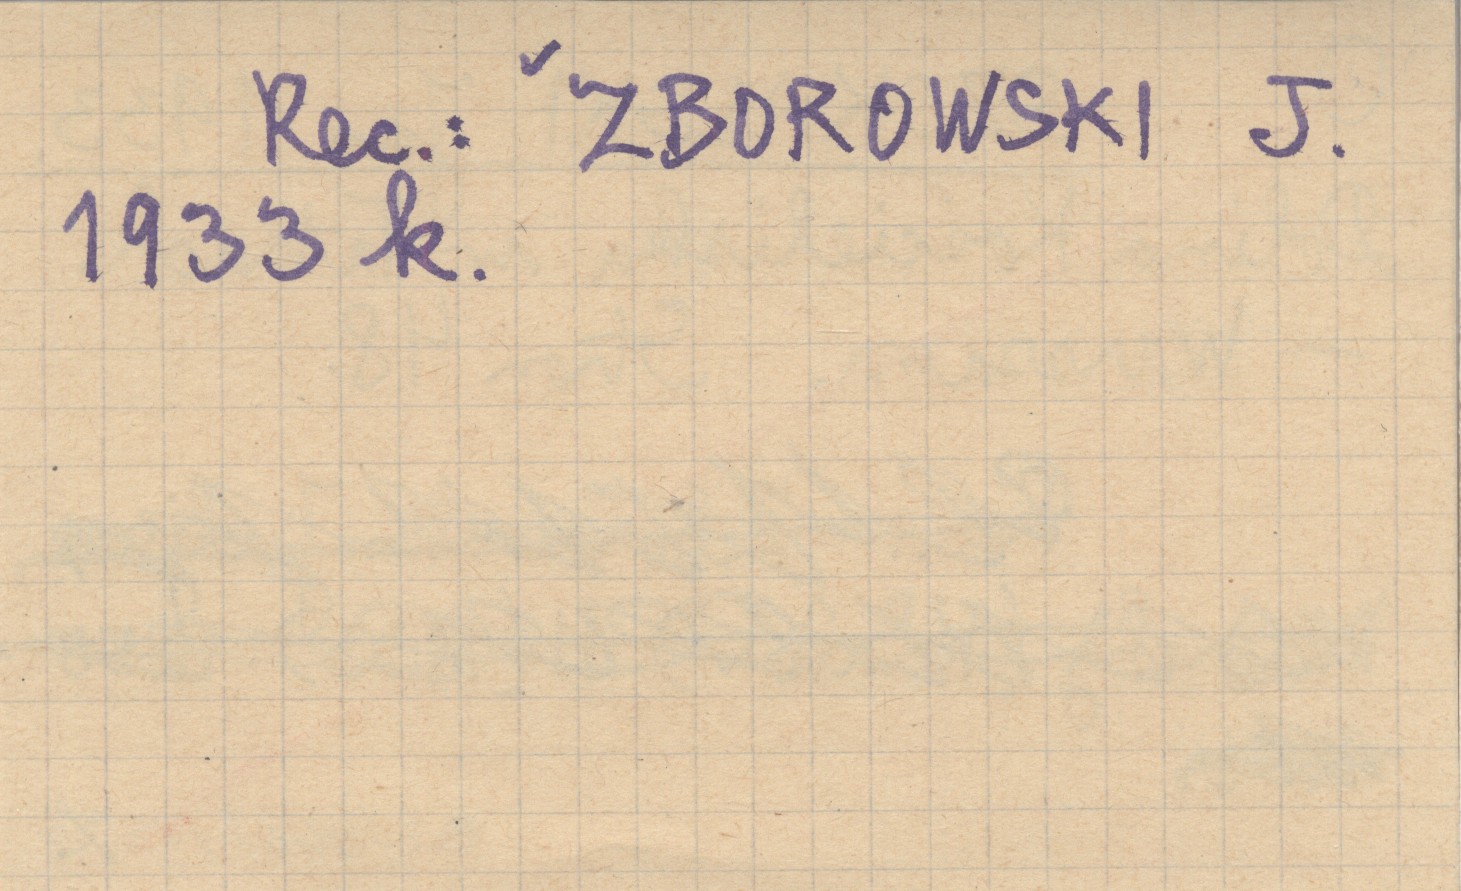 Rec.: ✓ZBOROWSKI J.
1933 k.